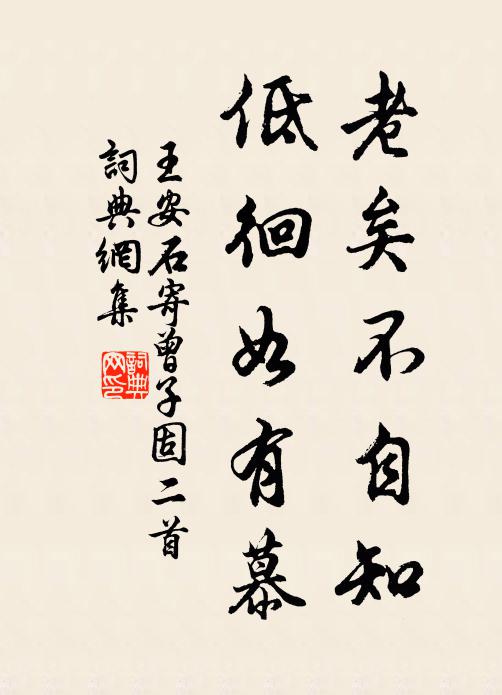 老矣不自知
低徊如有慕
王安石寄曾子固二首
詞典網集
詞典
网印